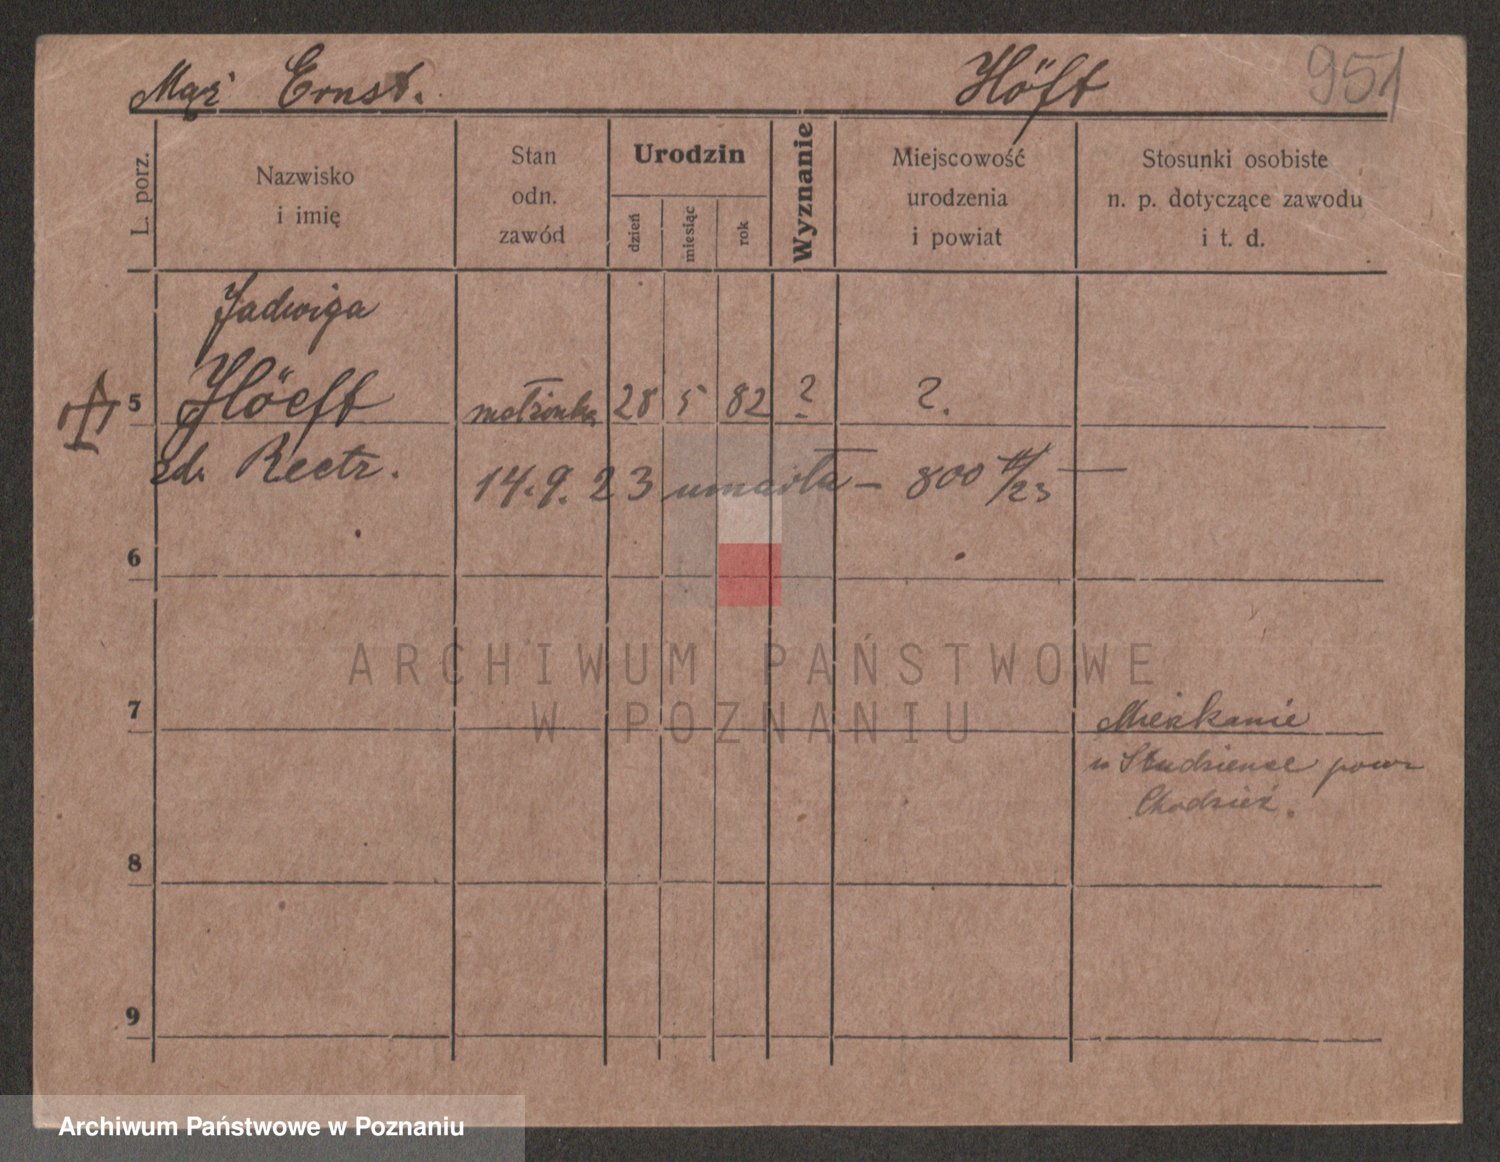 Mąż Ernst. Höft 951
L. porz.
Nazwisko
i imię
Stan
odn.
zawód
Urodzin
dzień
miesiąc
rok
Wyznanie
Miejscowość
urodzenia
i powiat
Stosunki osobiste
n. p. dotyczące zawodu
i t. d.
Jadwiga
5 Höeft małżonka 28 5 82 ? ?.
zd. Reetz.
14.9.23 umarła – 800 /23 —
6
ARCHIWUM PAŃSTWOWE
W POZNANIU
7
Mieszkanie
w Studzieńce pow
Chodzież.
8
9
Archiwum Państwowe w Poznaniu